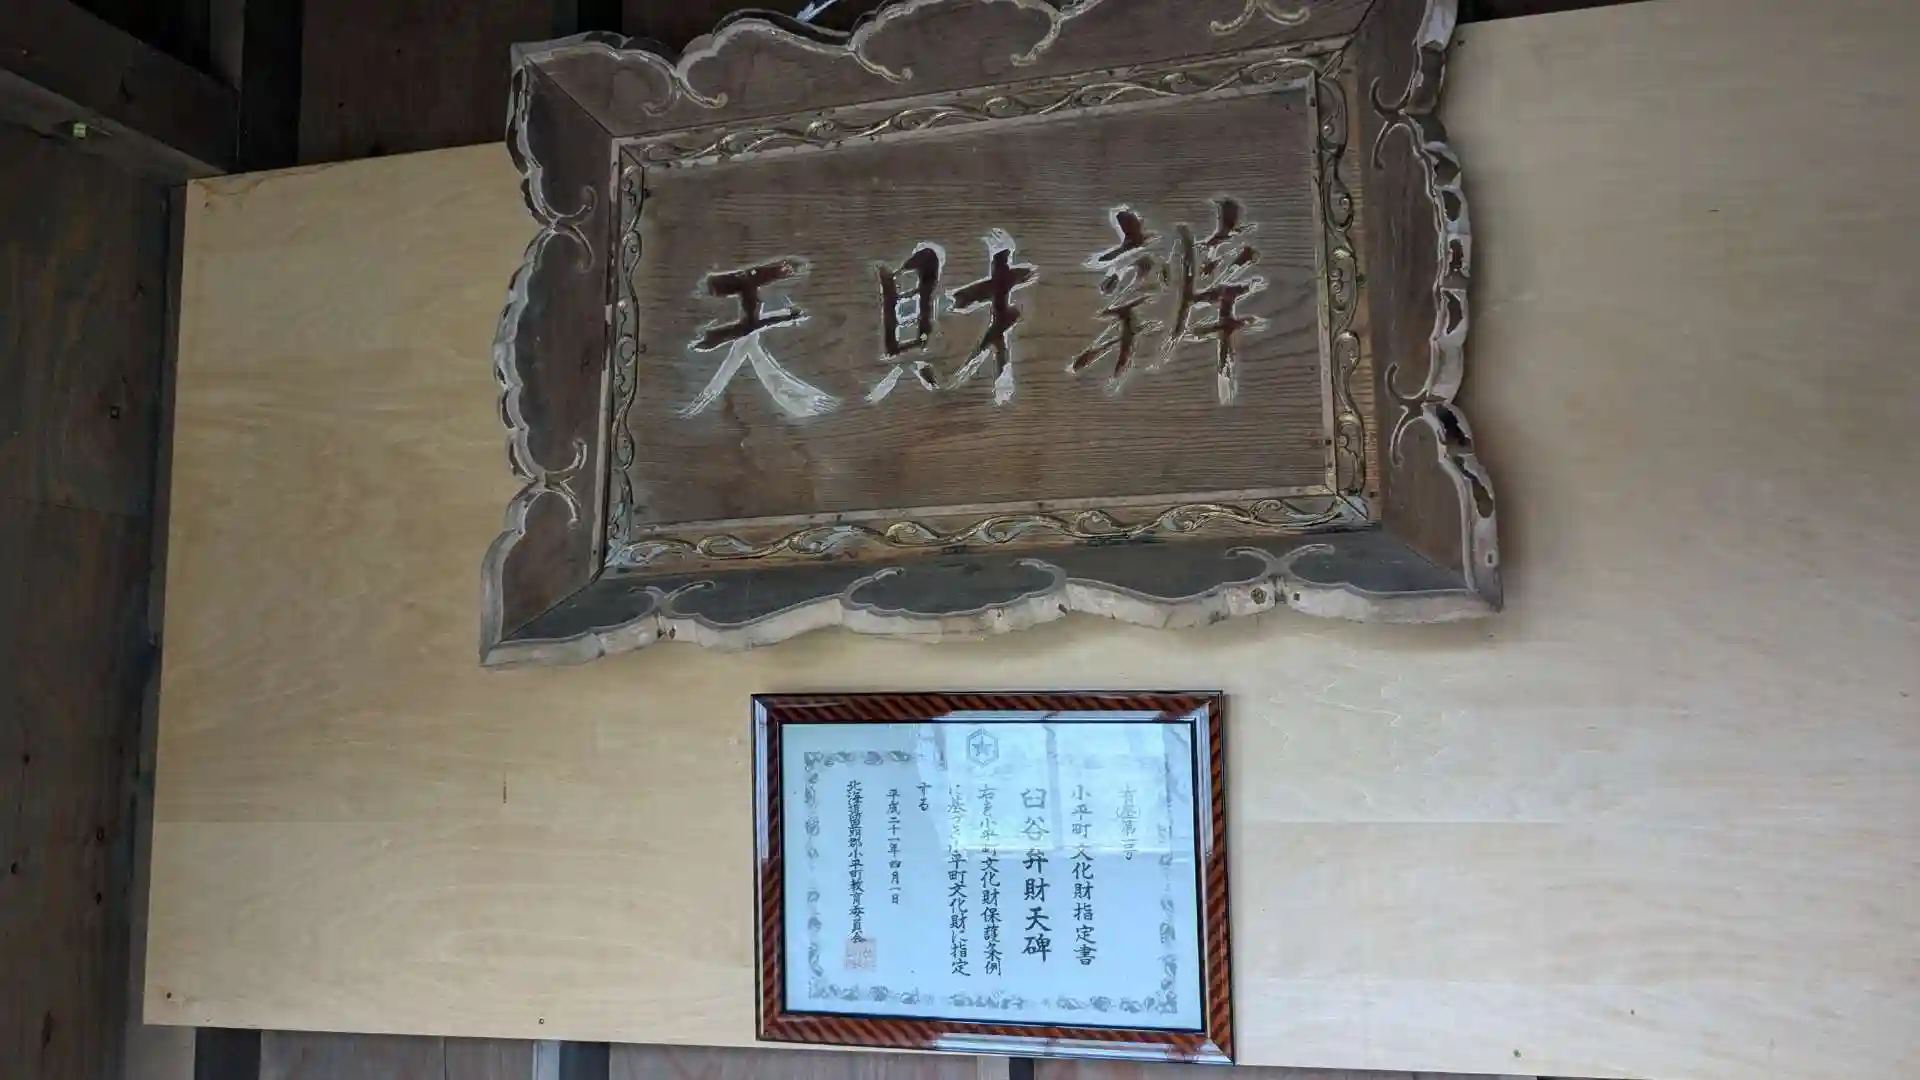 辨財天
有形第一号
小平町文化財指定書
臼谷弁財天碑
右を小平町文化財保護条例
に基づき小平町文化財に指定
する
平成二十一年四月一日
北海道留萌郡小平町教育委員会